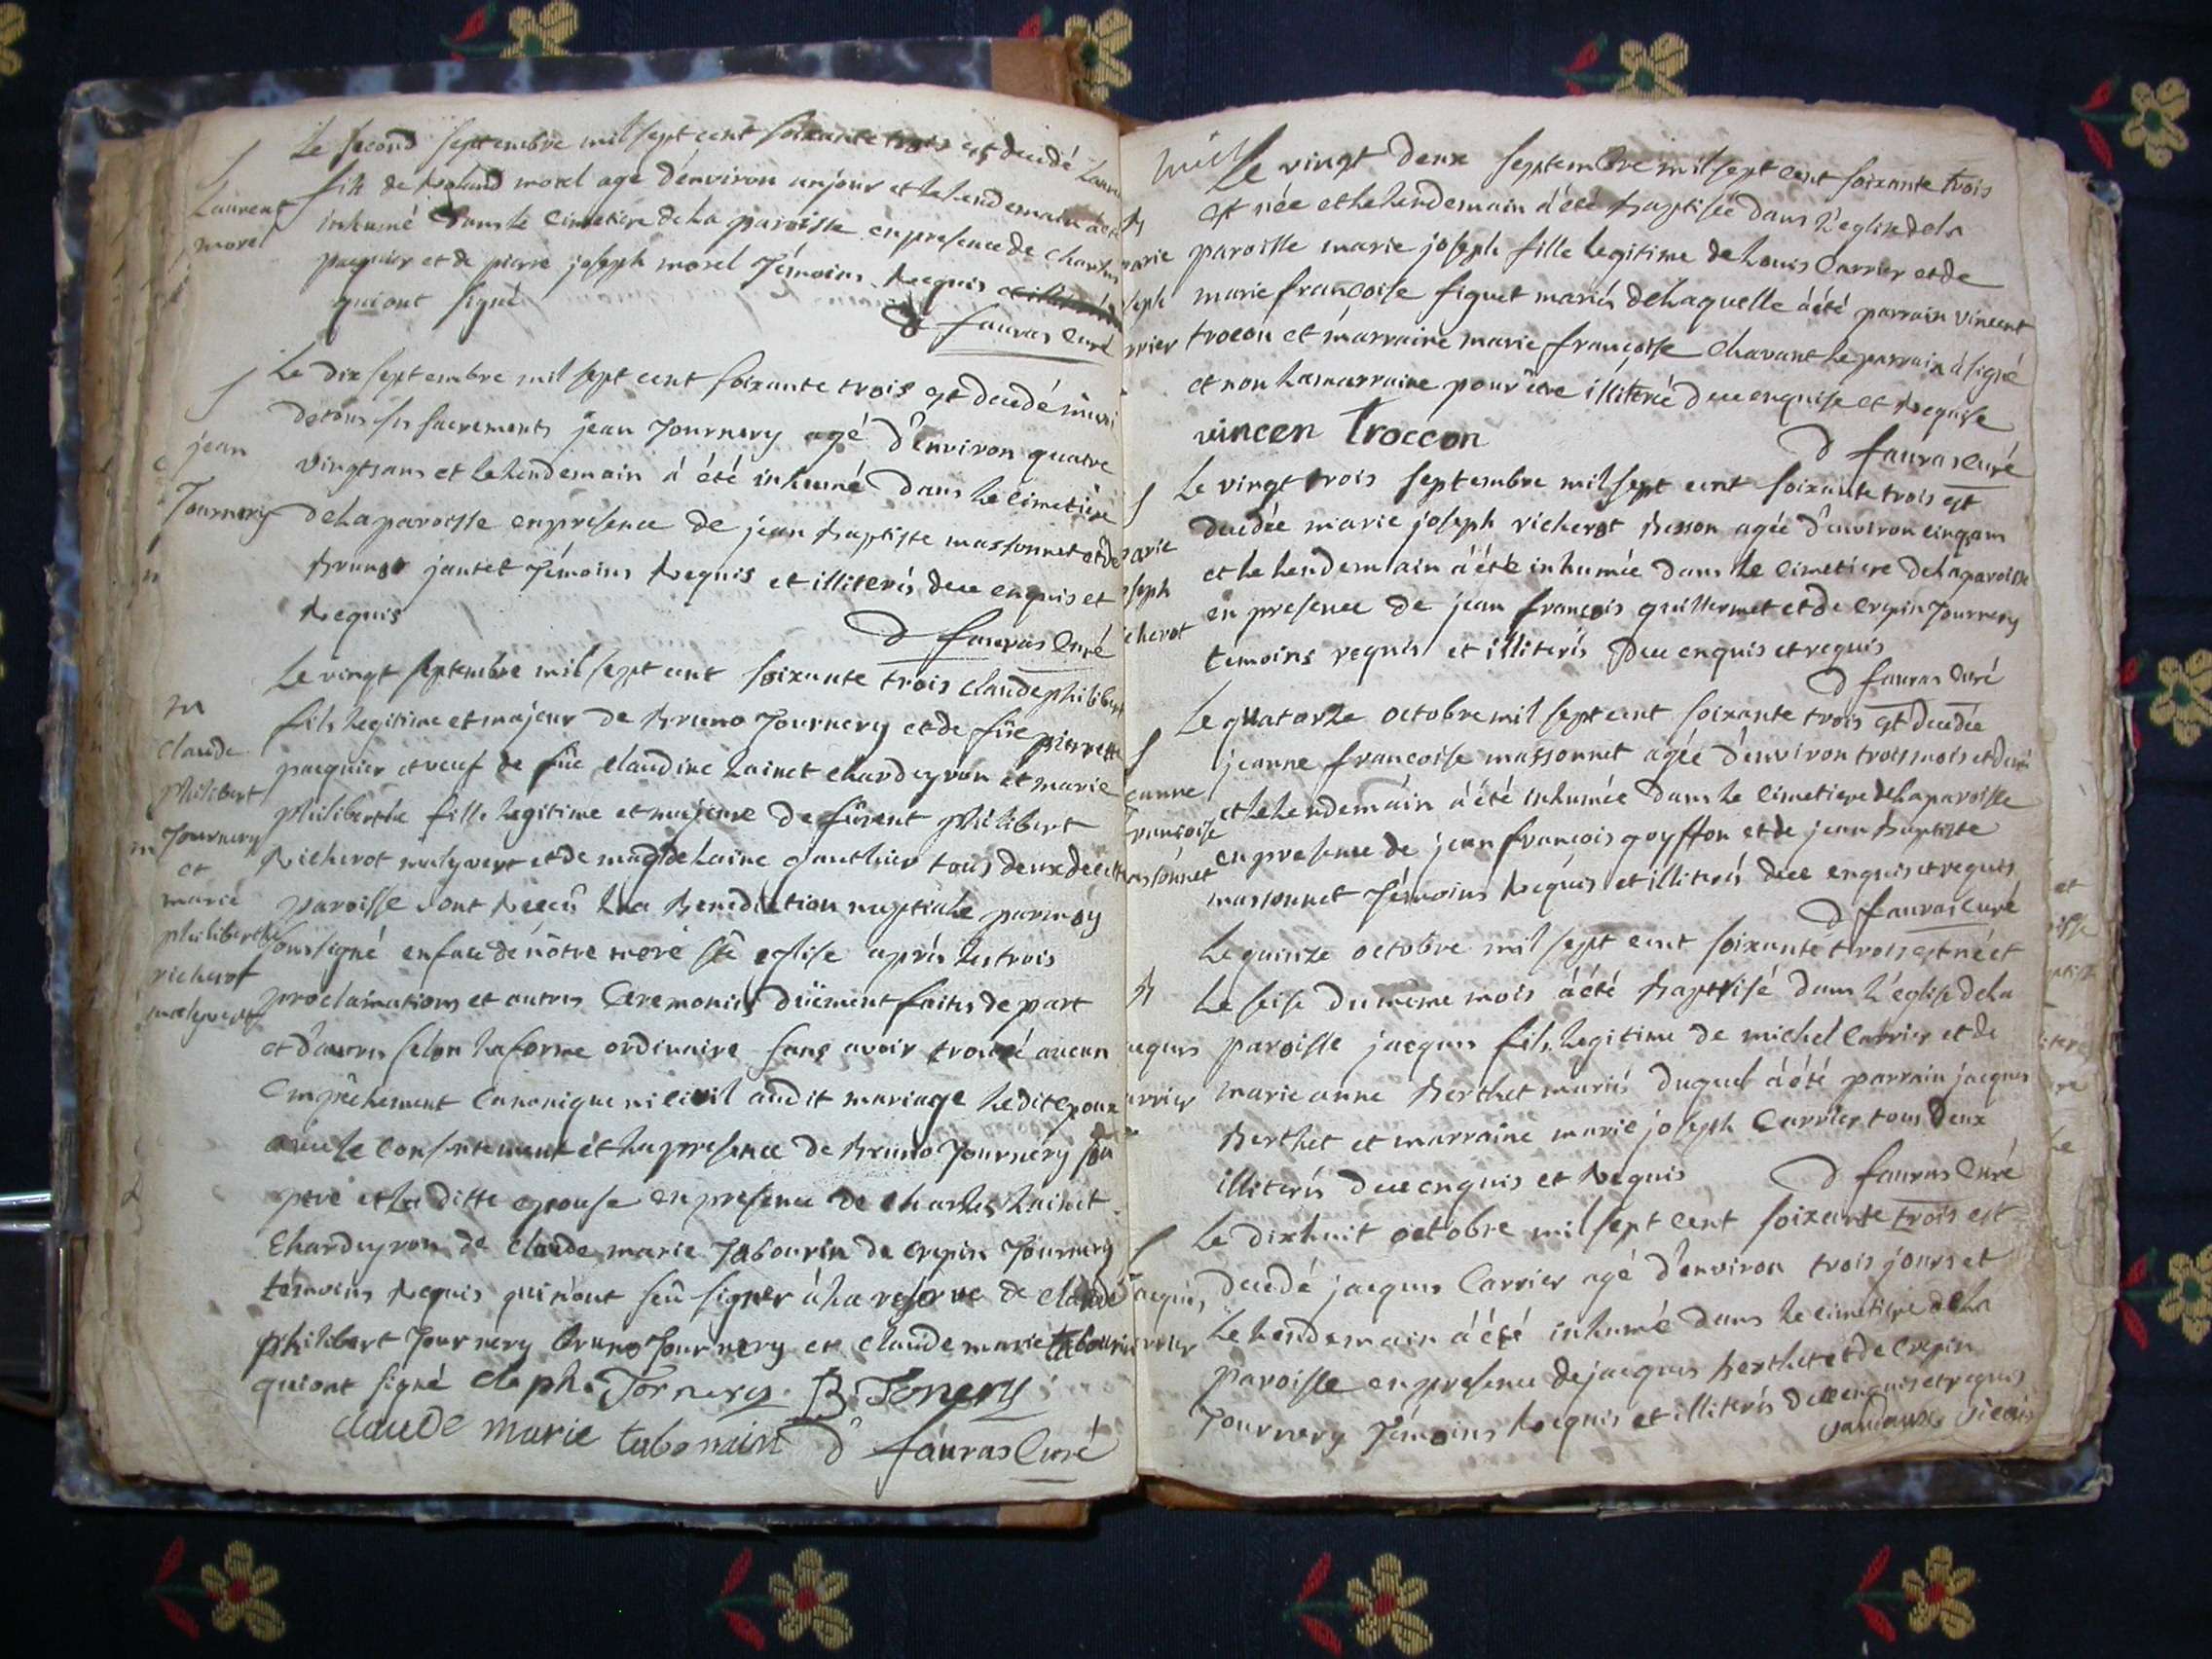 Le second septembre mil sept cent soixante trois est decedé
fils de Roland morel agé d'environ un jour et le lendemain a été
inhumé dans le cimetiere de la paroisse en presence de Charles
pacquier et de pierre joseph morel témoins Requis
qui ont signé
D fauras Curé
Laurent
morel
Le dix septembre mil sept cent soixante trois est decedé muni
de tous ses sacrements jean Journery agé d'environ quatre
vingts ans et le lendemain á été inhumé dans le cimetiere
de la paroisse en presence de jean Baptiste massonnet et de
Bruno jantet Témoins Requis et illiterés de ce enquis et
Requis
D fauras Curé
jean
Journery
Le vingt septembre mil sept cent soixante trois claude philibert
fils legitime et majeur de Bruno Journery et de füe pierrette
pacquier et veuf de füe claudine Lainet chardeyron et marie
philiberthe fille legitime et majeure de fürent philibert
Richerot malyvert et de magdelaine gauthier tous deux de cette
paroisse ont Receû la Benediction nuptiale par moy
soussigné en face de nôtre mere ste eglise aprés les trois
proclamations et autres Ceremonies düement faites de part
et d'autres selon la forme ordinaire sans avoir trouvé aucun
Empêchement Canonique ni civil audit mariage ledit epoux
avec le Consentement et la presence de Bruno Journery son
pere et la ditte epouse en presence de charles Lainet
Chardeyron de claude marie Tabourin de crepin Journery
témoins Requis qui n'ont seü signer á la reserve de claude
philibert Journery bruno Journery et claude marie tabourin
qui ont signé cla ph. Jornery. B. Jonery
claude marie tabourin D fauras Curé
m
claude
philibert
Journery
et
marie
philiberthe
richerot
malyvert
Le vingt deux septembre mil sept cent soixante trois
est née et le lendemain á été Baptisée dans l'eglise de la
paroisse marie joseph fille legitime de Louis Carrier et de
marie françoise figuet mariés de laquelle á été parrain vincent
trocon et marraine marie françoise Chavant le parrain á signé
et non la marraine pour être illiterée de ce enquise et Requise
vincen Troccon
D fauras curé
B
marie
seph
rrier
Le vingt trois septembre mil sept cent soixante trois est
decedée marie joseph richerot Besson agée d'environ cinq ans
et le lendemain á été inhumée dans le cimetiere de la paroisse
en presence de jean françois guillermet et de crepin Journery
temoins requis et illiterés de ce enquis et requis
D fauras Curé
arie
oseph
icherot
Le quatorze octobre mil sept cent soixante trois est decedée
jeanne françoise massonnet agée d'environ trois mois et demi
et le lendemain á été inhumée dans le cimetiere de la paroisse
en presence de jean françois goyffon et de jean Baptiste
massonnet Témoins Requis et illiterés de ce enquis et requis
D fauras Curé
eanne
françoise
assonnet
Le quinze octobre mil sept cent soixante trois est né et
Le seise du même mois á été Baptisé dans l'église de la
paroisse jacques fils legitime de michel Carrier et de
marie anne Berthet mariés duquel á été parrain jacques
Berthet et marraine marie joseph Carrier tous deux
illiterés de ce enquis et Requis D fauras Curé
B
acques
arrier
Le dixhuit octobre mil sept cent soixante trois est
decedé jacques Carrier agé d'environ trois jours et
le lendemain á été inhumé dans le cimetiere de la
paroisse en presence de jacques Berthet et de crepin
Journery Témoins Requis et illiterés de ce enquis et requis
vicaire
acques
rrier